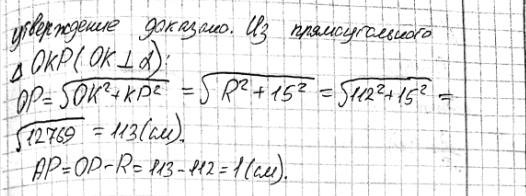 утверждение доказано. Из прямоугольного
Δ OKP (OK ⊥ α):
OP = √OK² + KP² = √R² + 15² = √112² + 15² =
√12769 = 113 (см).
AP = OP - R = 113 - 112 = 1 (см).